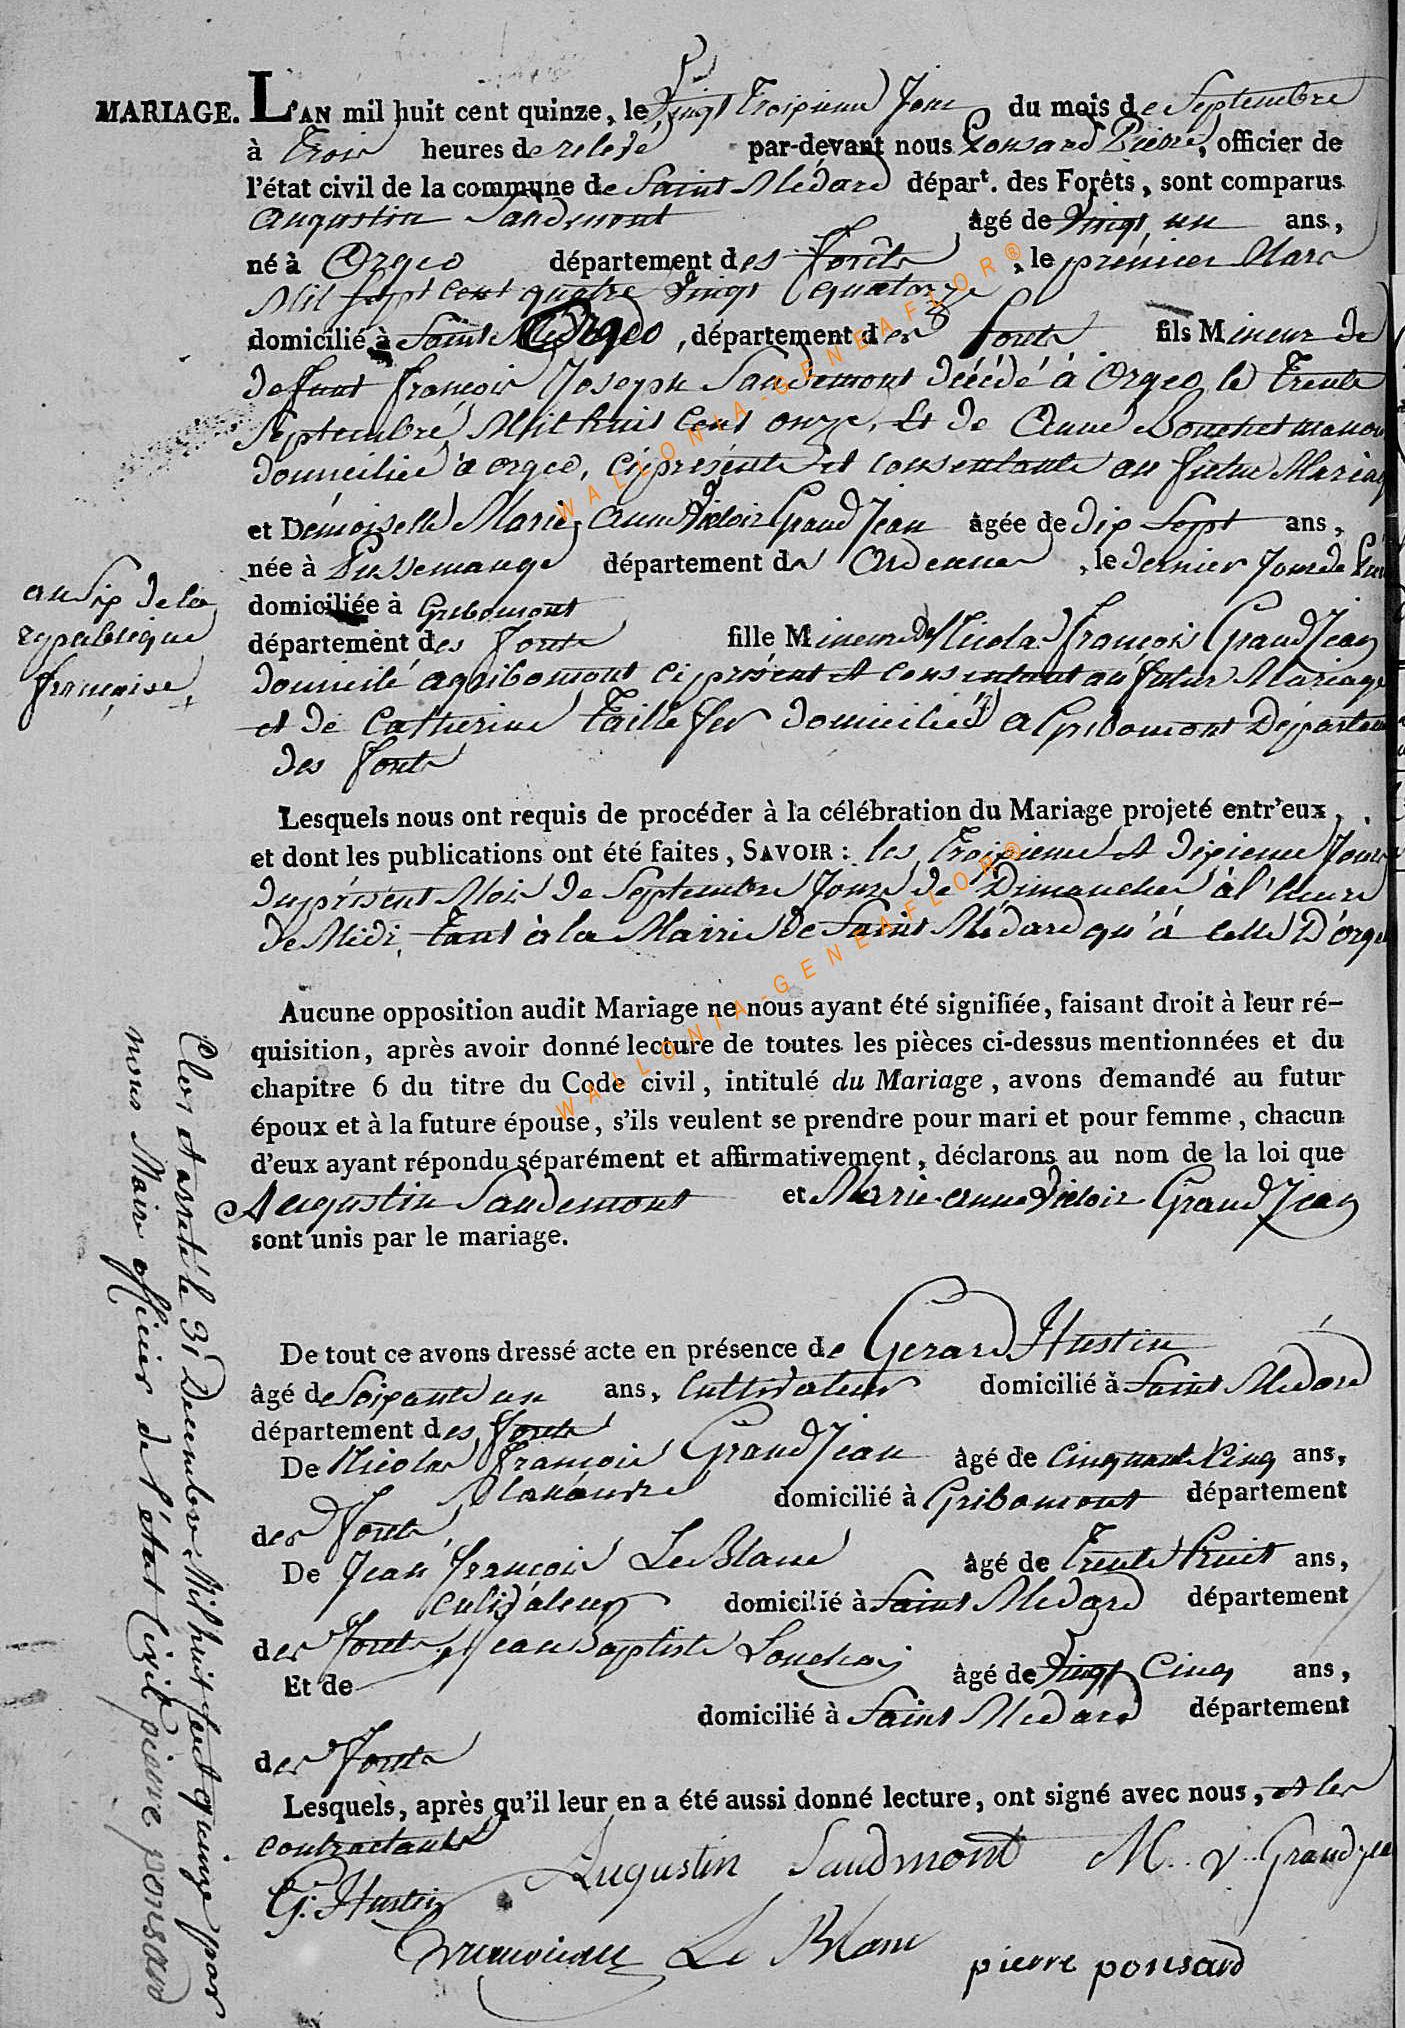 MARIAGE. L'AN mil huit cent quinze, le Vingt Troisieme Jour du mois de Septembre
à Trois heures de relevé par-devant nous Ponsard Pierre, officier de
l'état civil de la commune de Saint Médard départ. des Forêts, sont comparus
Augustin Saudemont âgé de Vingt un ans,
né à Orgeo département des forêts, le premier Mars
Mil Sept cent quatre Vingt quatorze
domicilié à Orgeo, département des forets fils Mineur de
defunt françois Joseph Saudemont décédé à Orgeo le Trente
Septembre Mil huit Cent onze, Et de Anne
domiciliée à orgeo, ci présente et consentante au futur Mariage
et Demoiselle Marie anne Victoir GrandJean âgée de dix Sept ans,
née à Pussemange département des Ardennes, le dernier Jour de
an Six de la
republique
française
domiciliée à Gribomont
département des forets fille Mineure de Nicolas françois GrandJean
domicilé a gribomont ci présent et consentant au futur Mariage
et de Catherine Taillefer domiciliée a Gribomont Département
des forets
Lesquels nous ont requis de procéder à la célébration du Mariage projeté entr'eux,
et dont les publications ont été faites, SAVOIR : les Troisieme et dixieme Jours
du présent Mois de Septembre Jours de Dimanche à l'heure
de Midi, tant à la Mairie de Saint Médard qu'à celle D'orgeo
Aucune opposition audit Mariage ne nous ayant été signifiée, faisant droit à leur ré-
quisition, après avoir donné lecture de toutes les pièces ci-dessus mentionnées et du
chapitre 6 du titre du Code civil, intitulé du Mariage, avons demandé au futur
époux et à la future épouse, s'ils veulent se prendre pour mari et pour femme, chacun
d'eux ayant répondu séparément et affirmativement, déclarons au nom de la loi que
Augustin Saudemont et Marie anne Victoir GrandJean
sont unis par le mariage.
De tout ce avons dressé acte en présence de Gerard Hustin
âgé de Soixante un ans, Cultivateur domicilié à Saint Médard
département des forets
De Nicolas François GrandJean âgé de Cinquante Cinq ans,
domicilié à Gribomont département
des forets
De Jean françois Le Blanc âgé de Trente huit ans,
Cultivateur domicilié à Saint Médard département
des forets Jean Baptiste
Et de âgé de Vingt Cinq ans,
domicilié à Saint Médard département
des forets
Lesquels, après qu'il leur en a été aussi donné lecture, ont signé avec nous, et les
contractants
Augustin Saudmont M. V. Grandjean
G. Hustin
Le Blanc pierre ponsard
Clos et arreté le 31 Decembre Mil huit Cent quinze par
nous Maire officier de l'état Civil pierre ponsard
WALLONIA-GENEAFLOR®
WALLONIA-GENEAFLOR®